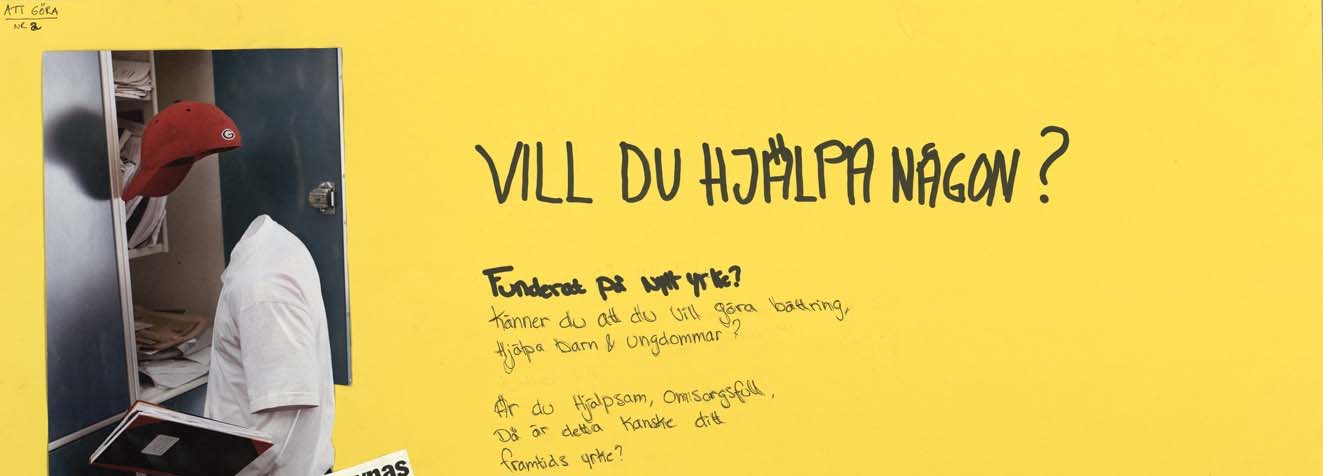 ATT GÖRA
NR 2
VILL DU HJÄLPA NÅGON?
Funderat på nytt yrke?
Känner du att du vill göra bättring,
Hjälpa barn & ungdommar?
Är du Hjälpsam, Omsorgsfull,
Då är detta kanske ditt
framtids yrke?
G